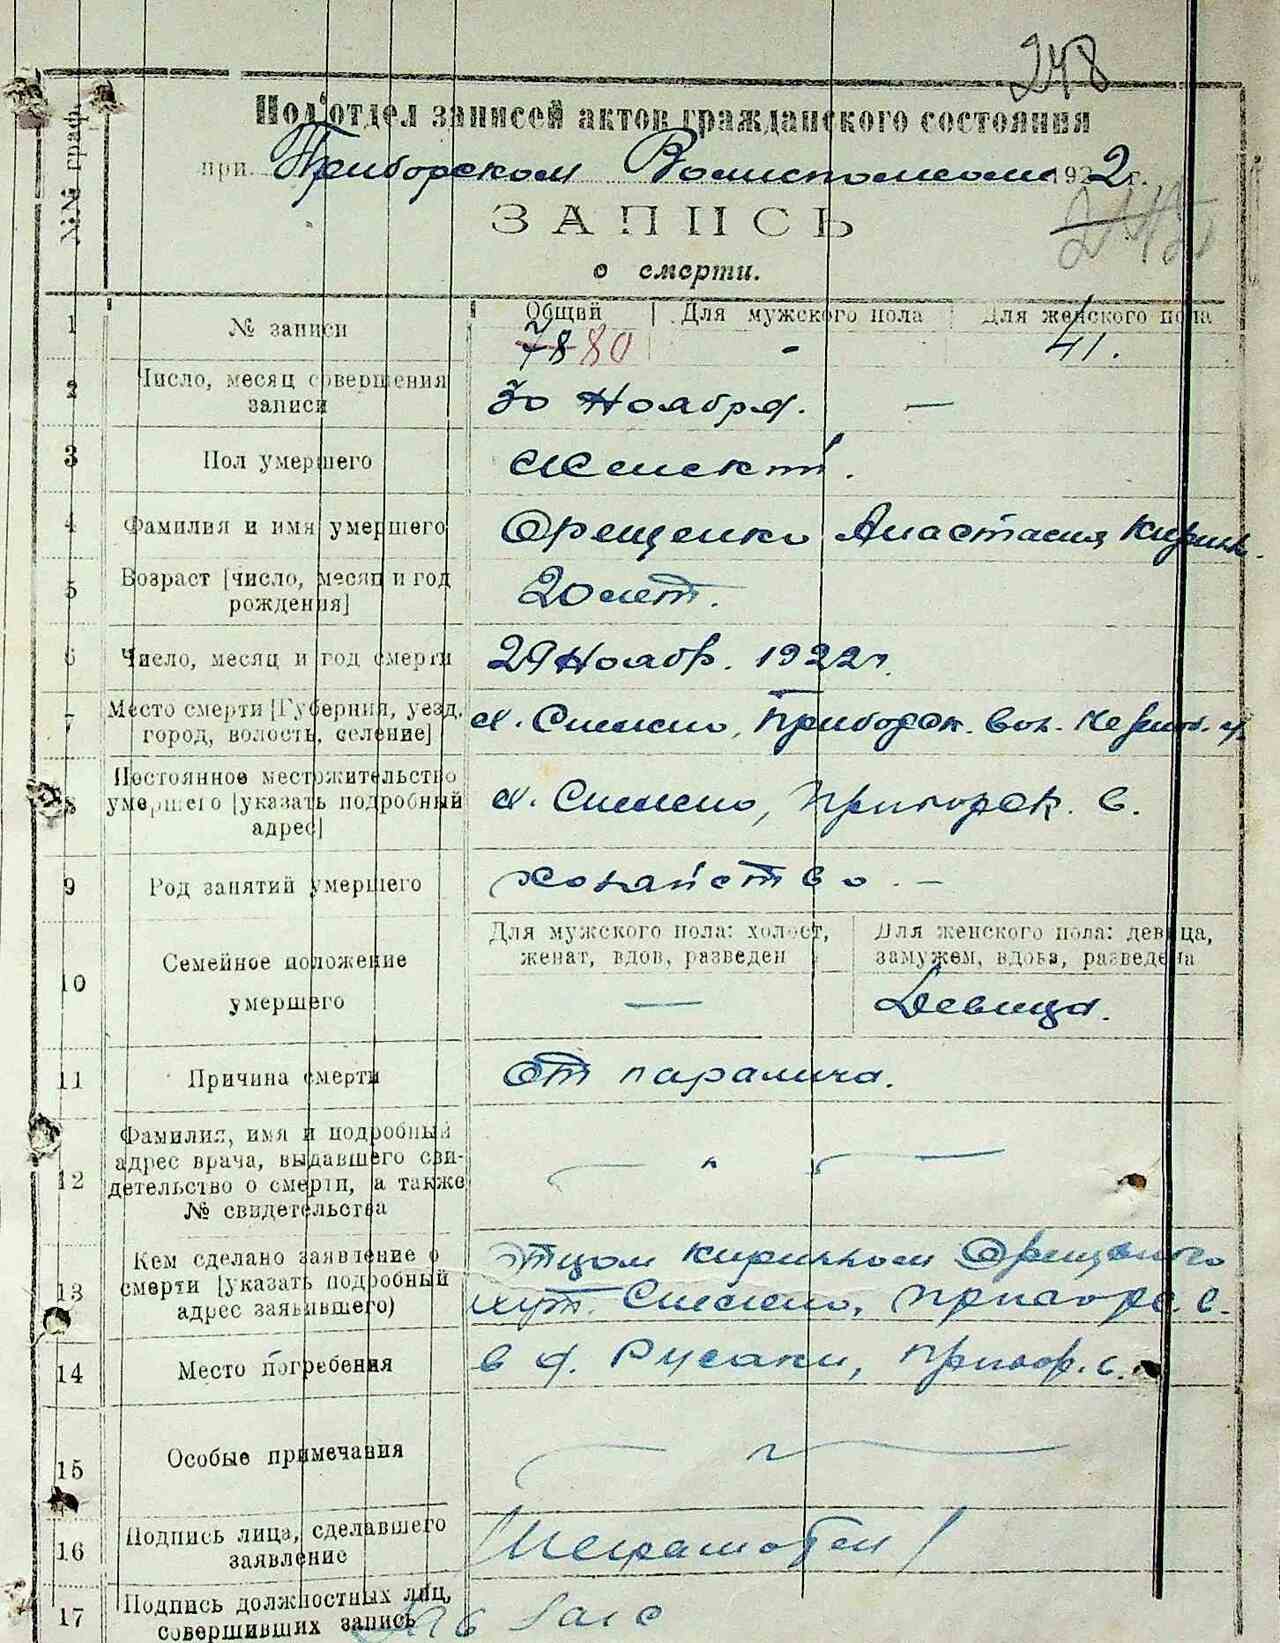 248
№№ граф.
Под'отдел записей актов гражданского состояния
при Приборском Волисполкоме 1922 г.
ЗАПИСЬ
о смерти.
1 № записи Общий Для мужского пола Для женского пола
78 80 - 41.
2 Число, месяц совершения записи 30 Ноября. —
3 Пол умершего женский.
4 Фамилия и имя умершего Орещенко Анастасия Кирилл.
5 Возраст [число, месяц и год рождения] 20 лет.
6 Число, месяц и год смерти 29 Ноябр. 1922 г.
7 Место смерти [Губерния, уезд, город, волость, селение] х. Снежно, Приборск. вол.
8 Постоянное местожительство умершего [указать подробный адрес] х. Снежно, Приборск. в.
9 Род занятий умершего хозяйство. —
10 Семейное положение умершего
Для мужского пола: холост, женат, вдов, разведен
Для женского пола: девица, замужем, вдова, разведена
— Девица.
11 Причина смерти От паралича.
12 Фамилия, имя и подробный адрес врача, выдавшего свидетельство о смерти, а также № свидетельства — " —
13 Кем сделано заявление о смерти [указать подробный адрес заявившего) Отцом Кириллом Орещенко
хут. Снежно, Приборс. в.
14 Место погребения в д. Русаки, Прибор. в.
15 Особые примечания
16 Подпись лица, сделавшего заявление /Неграмотен/
17 Подпись должностных лиц, совершивших запись Зав Загс